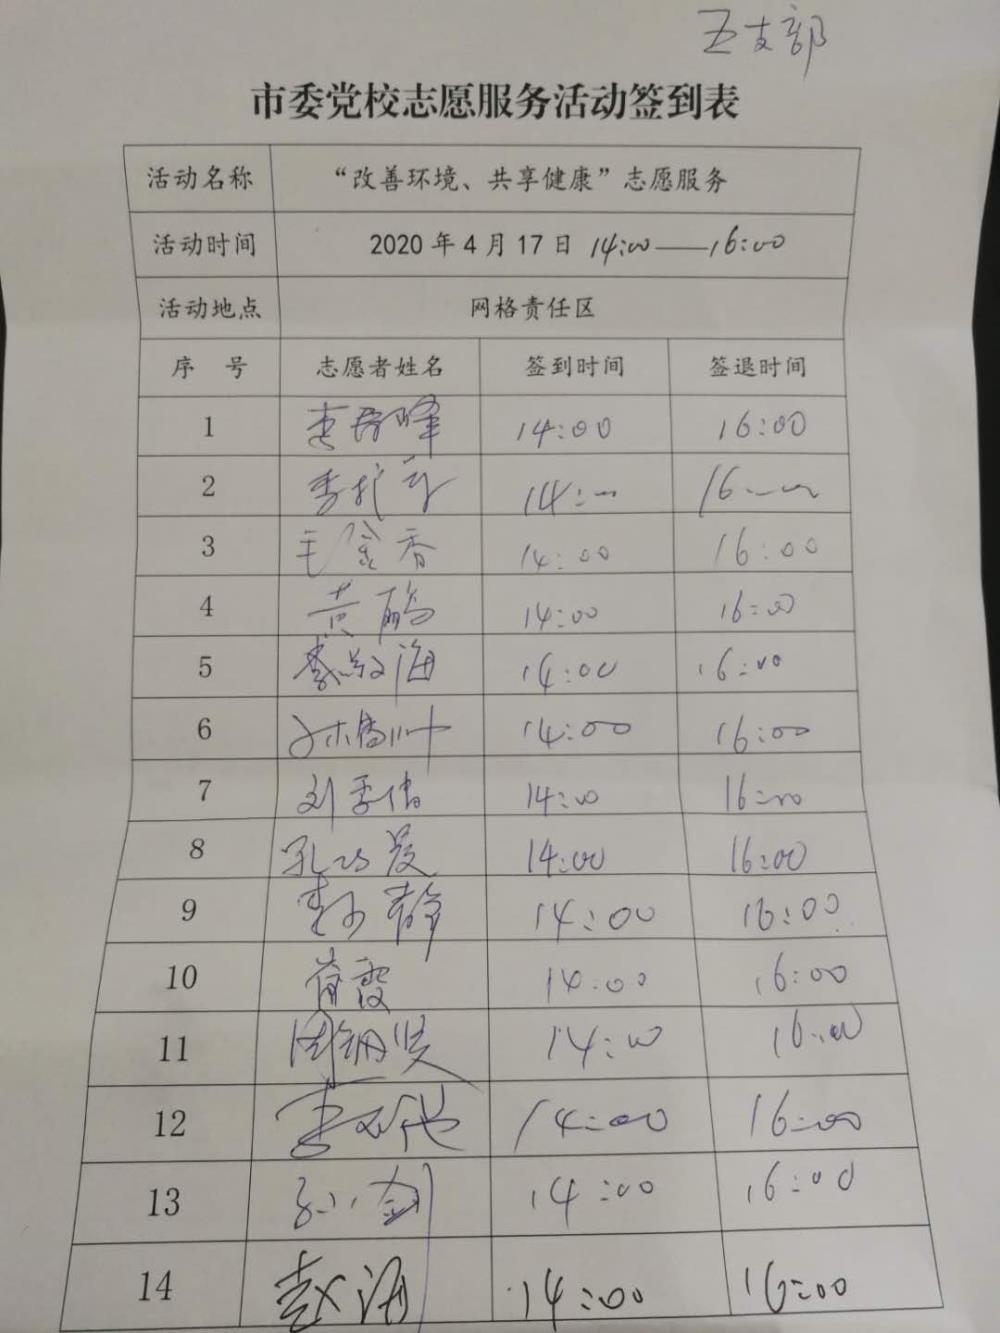 五支部
市委党校志愿服务活动签到表
活动名称 “改善环境、共享健康”志愿服务
活动时间 2020年4月17日 14:00——16:00
活动地点 网格责任区
序 号 志愿者姓名 签到时间 签退时间
1 14:00 16:00
2 14:00 16:00
3 毛金香 14:00 16:00
4 黄鹂 14:00 16:00
5 14:00 16:00
6 14:00 16:00
7 14:00 16:00
8 14:00 16:00
9 14:00 16:00
10 14:00 16:00
11 14:00 16:00
12 14:00 16:00
13 孙剑 14:00 16:00
14 赵海 14:00 16:00